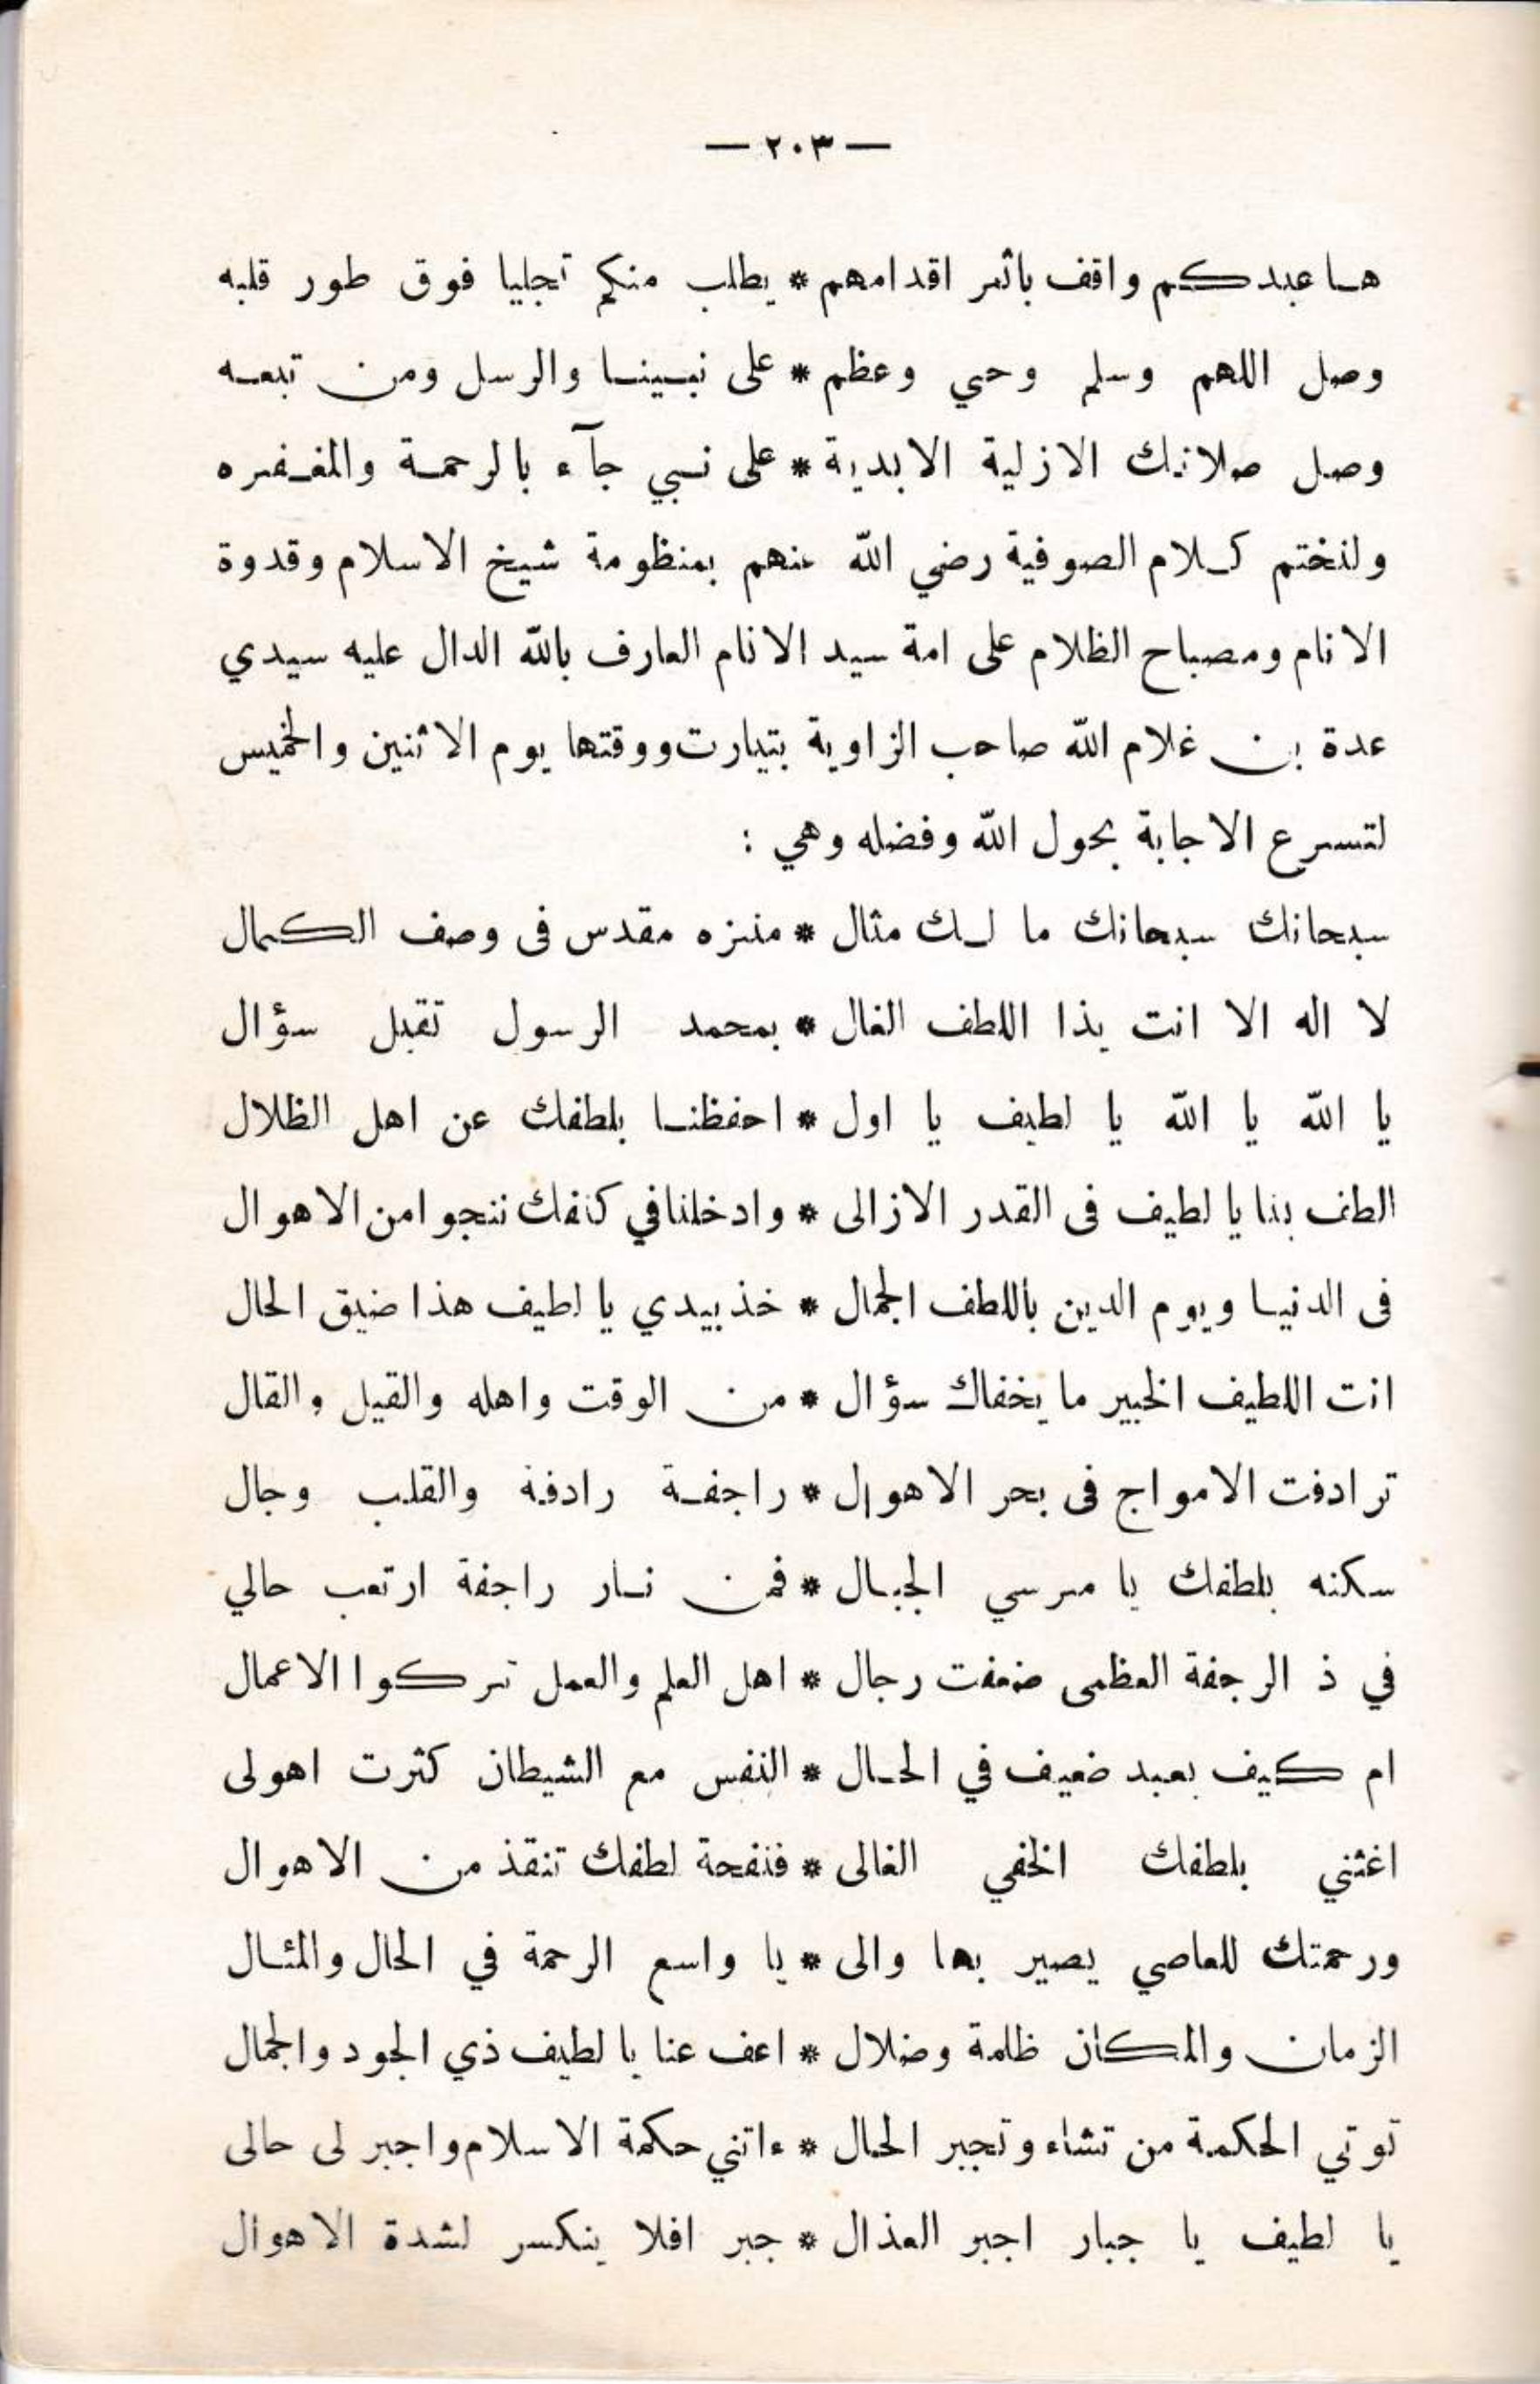 — ٢٠٣ —
هـا عبدكم واقف باثر اقدامهم * يطلب منكم تجليا فوق طور قلبه
وصل اللهم وسلم وحي وعظم * على نبينا والرسل ومن تبعه
وصل صلاتك الازلية الابدية * على نبي جآء بالرحمة والمغفره
ولنختم كلام الصوفية رضي الله عنهم بمنظومة شيخ الاسلام وقدوة
الانام ومصباح الظلام على امة سيد الانام العارف بالله الدال عليه سيدي
عدة بن غلام الله صاحب الزاوية بتيارت ووقتها يوم الاثنين والخميس
لتسرع الاجابة بحول الله وفضله وهي :
سبحانك سبحانك ما لك مثال * منزه مقدس فى وصف الكمال
لا اله الا انت يذا اللطف الغال * بمحمد الرسول تقبل سؤال
يا الله يا الله يا لطيف يا اول * احفظنا بلطفك عن اهل الظلال
الطف بنا يا لطيف فى القدر الازالى * وادخلنا في كنفك ننجوا من الاهوال
فى الدنيا ويوم الدين باللطف الجمال * خذ بيدي يا لطيف هذا ضيق الحال
انت اللطيف الخبير ما يخفاك سؤال * من الوقت واهله والقيل والقال
ترادفت الامواج فى بحر الاهوال * راجفة رادفة والقلب وجال
سكنه بلطفك يا مرسي الجبال * فمن نار راجفة ارتعب حالي
في ذ الرجفة العظمى ضعفت رجال * اهل العلم والعمل تركوا الاعمال
ام كيف بعبد ضعيف في الحال * النفس مع الشيطان كثرت اهولى
اغثني بلطفك الخفي الغالى * فنفحة لطفك تنقذ من الاهوال
ورحمتك للعاصي يصير بها والى * يا واسع الرحمة في الحال والمئال
الزمان والمكان ظلمة وضلال * اعف عنا يا لطيف ذي الجود والجمال
توتي الحكمة من تشاء وتجبر الحال * ءاتني حكمة الاسلام واجبر لى حالى
يا لطيف يا جبار اجبر العذال * جبر افلا ينكسر لشدة الاهوال